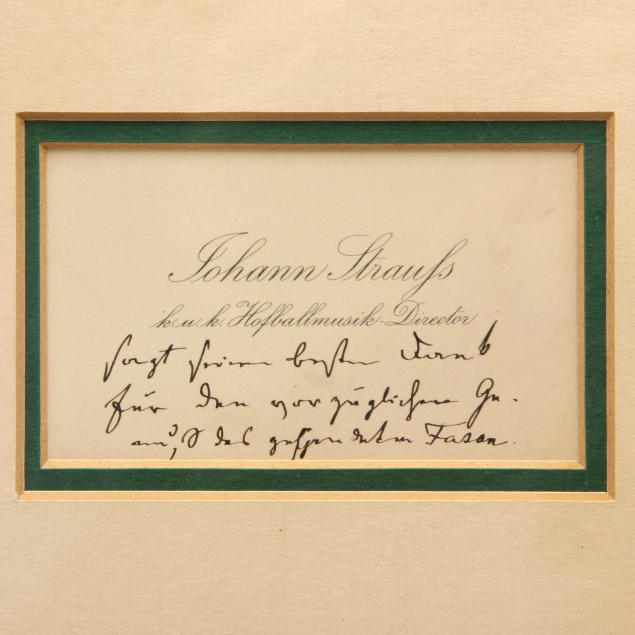 Johann Strauſs
k. u. k. Hofballmusik-Director
sagt seinen besten Dank
für den vorzüglichen Ge-
des gespendeten Fasan.